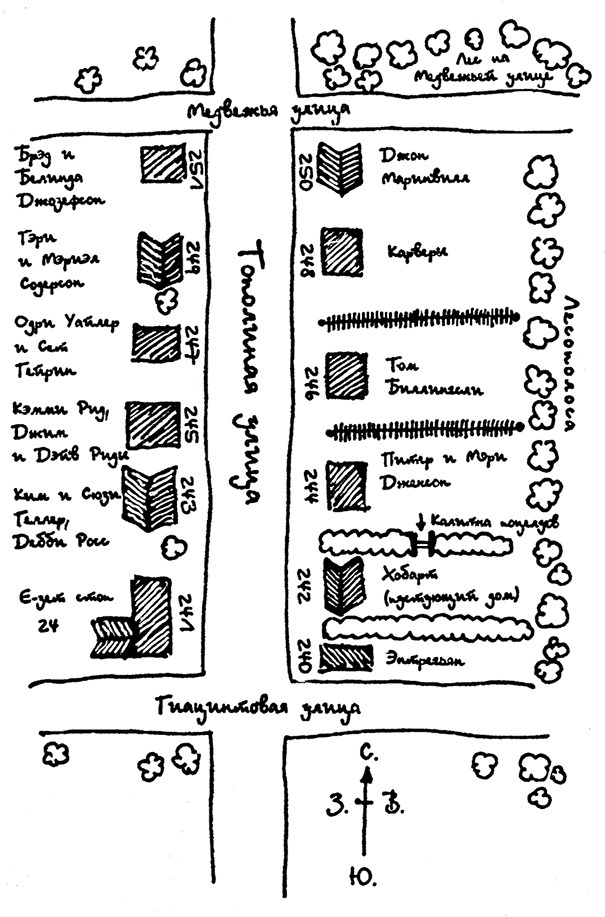 Лес на
Медвежьей улице
Медвежья улица
Брэд и
Белинда
Джозефсон
251
250
Джон
Маринвилл
Тэри
и Мэриэл
Содерсон
249
248
Карверы
Тополиная улица
Лесополоса
Одри Уайлер
и Сет
Гейрин
247
246
Том
Биллингсли
Кэмми Рид,
Джим
и Дэйв Риды
245
244
Питер и Мэри
Джексон
Ким и Сюзи
Геллер,
Дебби Росс
243
Калитка поцелуев
242
Хобарт
(пустующий дом)
Е-зет стоп
24
241
240
Энтрегьян
Гиацинтовая улица
С.
З.
В.
Ю.